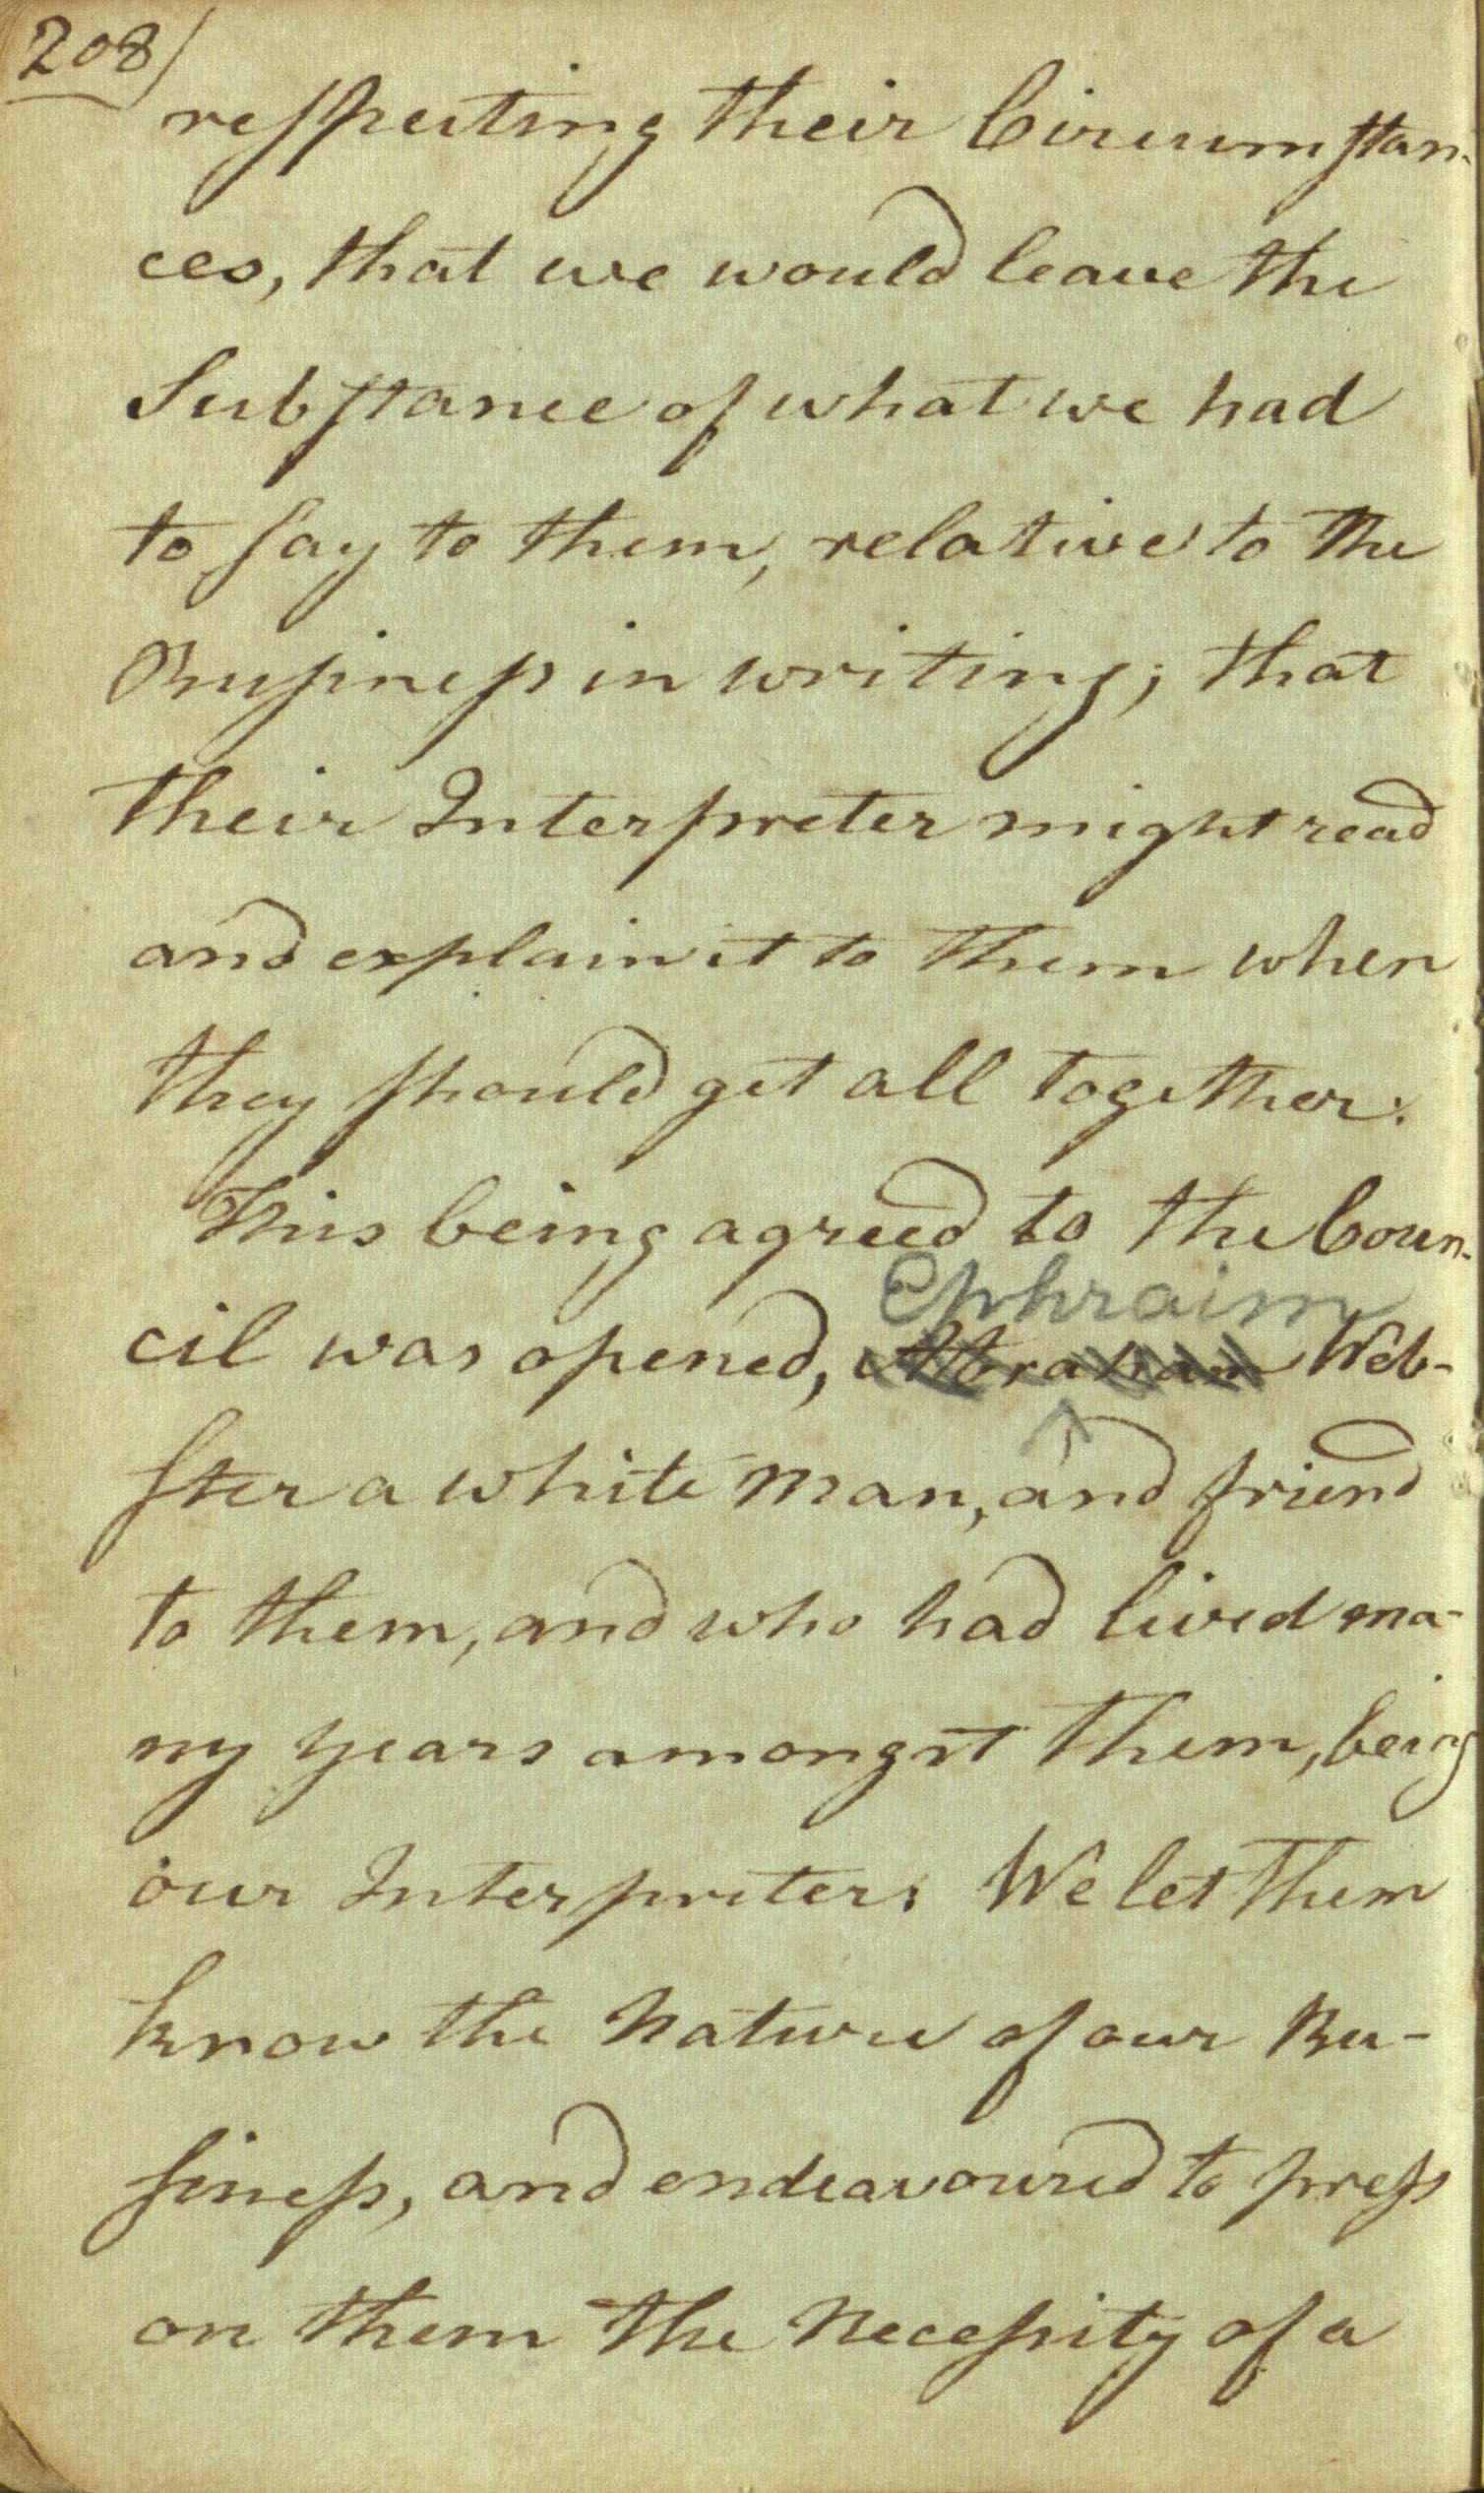 208
respecting their Circumstan-
ces, that we would leave the
Substance of what we had
to say to them, relative to the
Business in writing; that
their Interpreter might read
and explain it to them when
they should get all together.
This being agreed to the Coun-
Ephraim
cil was opened, Abraham Web-
ster a white man, and friend
to them, and who had lived ma-
ny years amongst them, being
our Interpreter. We let them
know the Nature of our Bu-
siness, and endeavoured to press
on them the Necessity of a